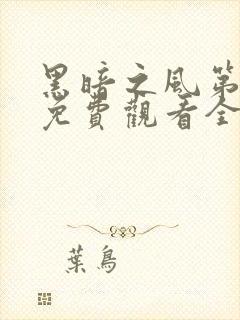 黑暗之風第
免費觀看全
葉鳥